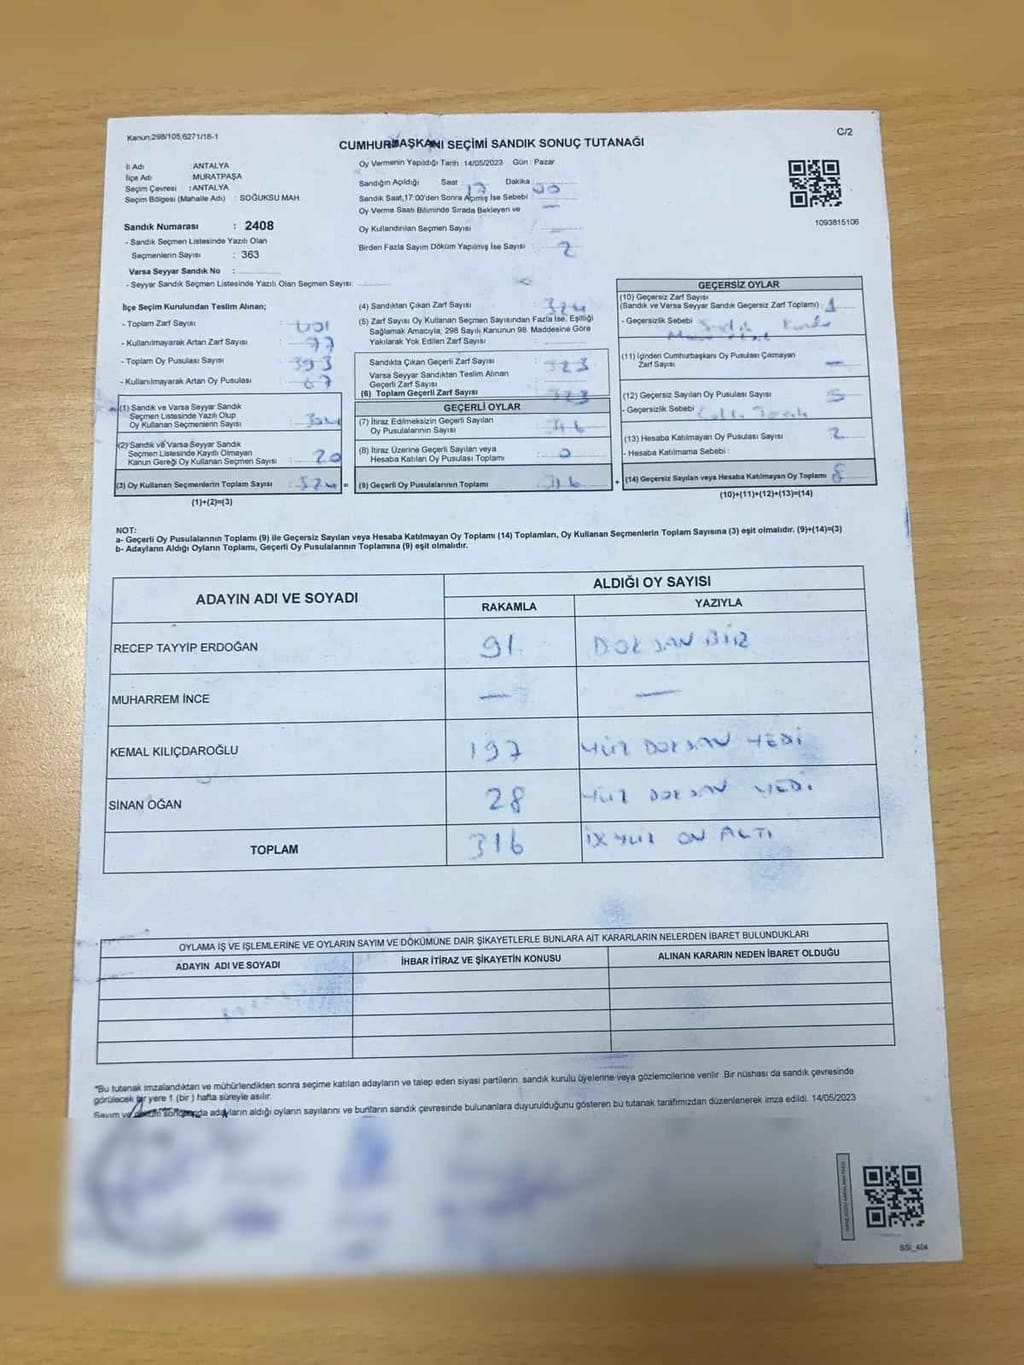 Kanun;298/105;6271/18-1
C/2
CUMHURBAŞKANI SEÇİMİ SANDIK SONUÇ TUTANAĞI
İl Adı : ANTALYA
İlçe Adı : MURATPAŞA
Seçim Çevresi : ANTALYA
Seçim Bölgesi (Mahalle Adı) : SOĞUKSU MAH.
Oy Vermenin Yapıldığı Tarih : 14/05/2023 Gün : Pazar
Sandığın Açıldığı Saat 17 Dakika 00
Sandık Saat,17:00'den Sonra Açılmış İse Sebebi
Oy Verme Saati Bitiminde Sırada Bekleyen ve —
Oy Kullandırılan Seçmen Sayısı
Birden Fazla Sayım Döküm Yapılmış İse Sayısı 2
1093815106
Sandık Numarası : 2408
- Sandık Seçmen Listesinde Yazılı Olan
Seçmenlerin Sayısı : 363
Varsa Seyyar Sandık No :
- Seyyar Sandık Seçmen Listesinde Yazılı Olan Seçmen Sayısı:
İlçe Seçim Kurulundan Teslim Alınan;
- Toplam Zarf Sayısı :
- Kullanılmayarak Artan Zarf Sayısı : 77
- Toplam Oy Pusulası Sayısı : 393
- Kullanılmayarak Artan Oy Pusulası : 67
(1) Sandık ve Varsa Seyyar Sandık
Seçmen Listesinde Yazılı Olup
Oy Kullanan Seçmenlerin Sayısı : 304
(2) Sandık ve Varsa Seyyar Sandık
Seçmen Listesinde Kayıtlı Olmayan
Kanun Gereği Oy Kullanan Seçmen Sayısı : 20
(3) Oy Kullanan Seçmenlerin Toplam Sayısı : 324 =
(1)+(2)=(3)
(4) Sandıktan Çıkan Zarf Sayısı : 324
(5) Zarf Sayısı Oy Kullanan Seçmen Sayısından Fazla İse, Eşitliği
Sağlamak Amacıyla; 298 Sayılı Kanunun 98. Maddesine Göre
Yakılarak Yok Edilen Zarf Sayısı :
Sandıkta Çıkan Geçerli Zarf Sayısı : 323
Varsa Seyyar Sandıktan Teslim Alınan
Geçerli Zarf Sayısı :
(6) Toplam Geçerli Zarf Sayısı : 323
GEÇERLİ OYLAR
(7) İtiraz Edilmeksizin Geçerli Sayılan
Oy Pusulalarının Sayısı : 316
(8) İtiraz Üzerine Geçerli Sayılan veya
Hesaba Katılan Oy Pusulası Toplamı : 0
(9) Geçerli Oy Pusulalarının Toplamı : 316 +
GEÇERSİZ OYLAR
(10) Geçersiz Zarf Sayısı
(Sandık ve Varsa Seyyar Sandık Geçersiz Zarf Toplamı) : 1
- Geçersizlik Sebebi : Sandık Kurulu
(11) İçinden Cumhurbaşkanı Oy Pusulası Çıkmayan
Zarf Sayısı : —
(12) Geçersiz Sayılan Oy Pusulası Sayısı : 5
- Geçersizlik Sebebi :
(13) Hesaba Katılmayan Oy Pusulası Sayısı : 2
- Hesaba Katılmama Sebebi :
(14) Geçersiz Sayılan veya Hesaba Katılmayan Oy Toplamı : 8
(10)+(11)+(12)+(13)=(14)
NOT:
a- Geçerli Oy Pusulalarının Toplamı (9) ile Geçersiz Sayılan veya Hesaba Katılmayan Oy Toplamı (14) Toplamları, Oy Kullanan Seçmenlerin Toplam Sayısına (3) eşit olmalıdır. (9)+(14)=(3)
b- Adayların Aldığı Oyların Toplamı, Geçerli Oy Pusulalarının Toplamına (9) eşit olmalıdır.
ADAYIN ADI VE SOYADI
ALDIĞI OY SAYISI
RAKAMLA YAZIYLA
RECEP TAYYİP ERDOĞAN 91 DOKSAN BİR
MUHARREM İNCE — —
KEMAL KILIÇDAROĞLU 197 YÜZ DOKSAN YEDİ
SİNAN OĞAN 28 YÜZ DOKSAN YEDİ
TOPLAM 316 ÜÇ YÜZ ON ALTI
OYLAMA İŞ VE İŞLEMLERİNE VE OYLARIN SAYIM VE DÖKÜMÜNE DAİR ŞİKAYETLERLE BUNLARA AİT KARARLARIN NELERDEN İBARET BULUNDUKLARI
ADAYIN ADI VE SOYADI İHBAR İTİRAZ VE ŞİKAYETİN KONUSU ALINAN KARARIN NEDEN İBARET OLDUĞU
*Bu tutanak imzalandıktan ve mühürlendikten sonra seçime katılan adayların ve talep eden siyasi partilerin sandık kurulu üyelerine veya gözlemcilerine verilir. Bir nüshası da sandık çevresinde
görülecek bir yere 1 (bir) hafta süreyle asılır.
Sayım ve döküm sonucunda adayların aldığı oyların sayılarını ve bunların sandık çevresinde bulunanlara duyurulduğunu gösteren bu tutanak tarafımızdan düzenlenerek imza edildi. 14/05/2023
SSI_404